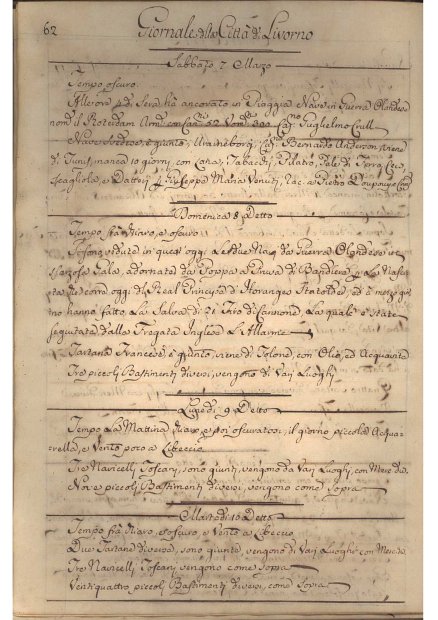 62
Giornale della Città di Livorno
Sabbato 7 Marzo
Tempo oscuro.
Alle ore 4 di Sera hà ancorato in Piaggia Nave in Guerra Olandese
il Roterdam Cap.no Guglielmo Crull
Nave Svedese, è giunta, Cap. Bernardo Anderson, viene
di Tunis, manca 10 giorni, con Lana, Tabacchi,
e Datteri, Giuseppe Maria Venuti, rac. a Pietro
Domenica 8 Detto
Tempo frà Chiaro, e oscuro
Si sono vedute in quest'oggi Le due Navi da Guerra Olandese in
Gala, adornate da Poppa a Prua di Bandiere, p. La Nasci-
ta del Real Principe di Horanges Statolder, ed à mezzo gior
no hanno fatto La Salva di 21 Tiro di Cannone, La quale è state
seguitata dalla Fregata Inglese L'Allarme
Tartana Francese, è giunta, viene di Tolone, con Olio, ed Acquavita
Tre piccoli Bastimenti diversi, vengono di Varj Luoghi
Lunedì 9 Detto
Tempo La Mattina Chiaro, e poi oscuratosi, il giorno piccola Acque-
rella, e Vento poco a Libeccio
Tre Navicelli Toscani, sono giunti, vengono da Varj Luoghi, con Mercd.
Nove piccoli Bastimenti diversi, vengono come Sopra
Martedì 10 Detto
Tempo frà Chiaro, e oscuro, e Vento a Libeccio
Due Tartane diverse, sono giunte, vengono di Varj Luoghi con Mercd
Tre Navicelli Toscani vengono come sopra
Ventiquattro piccoli Bastimenti diversi, come Sopra